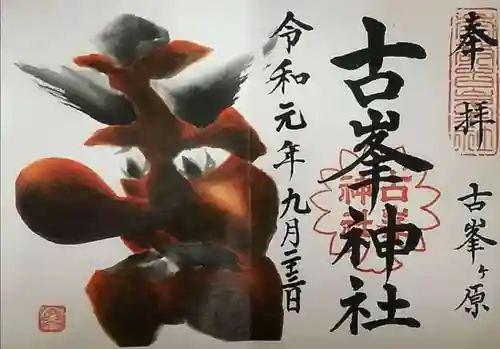 奉拝
古峯ヶ原
古峯神社
古峯
神社
令和元年九月二十三日